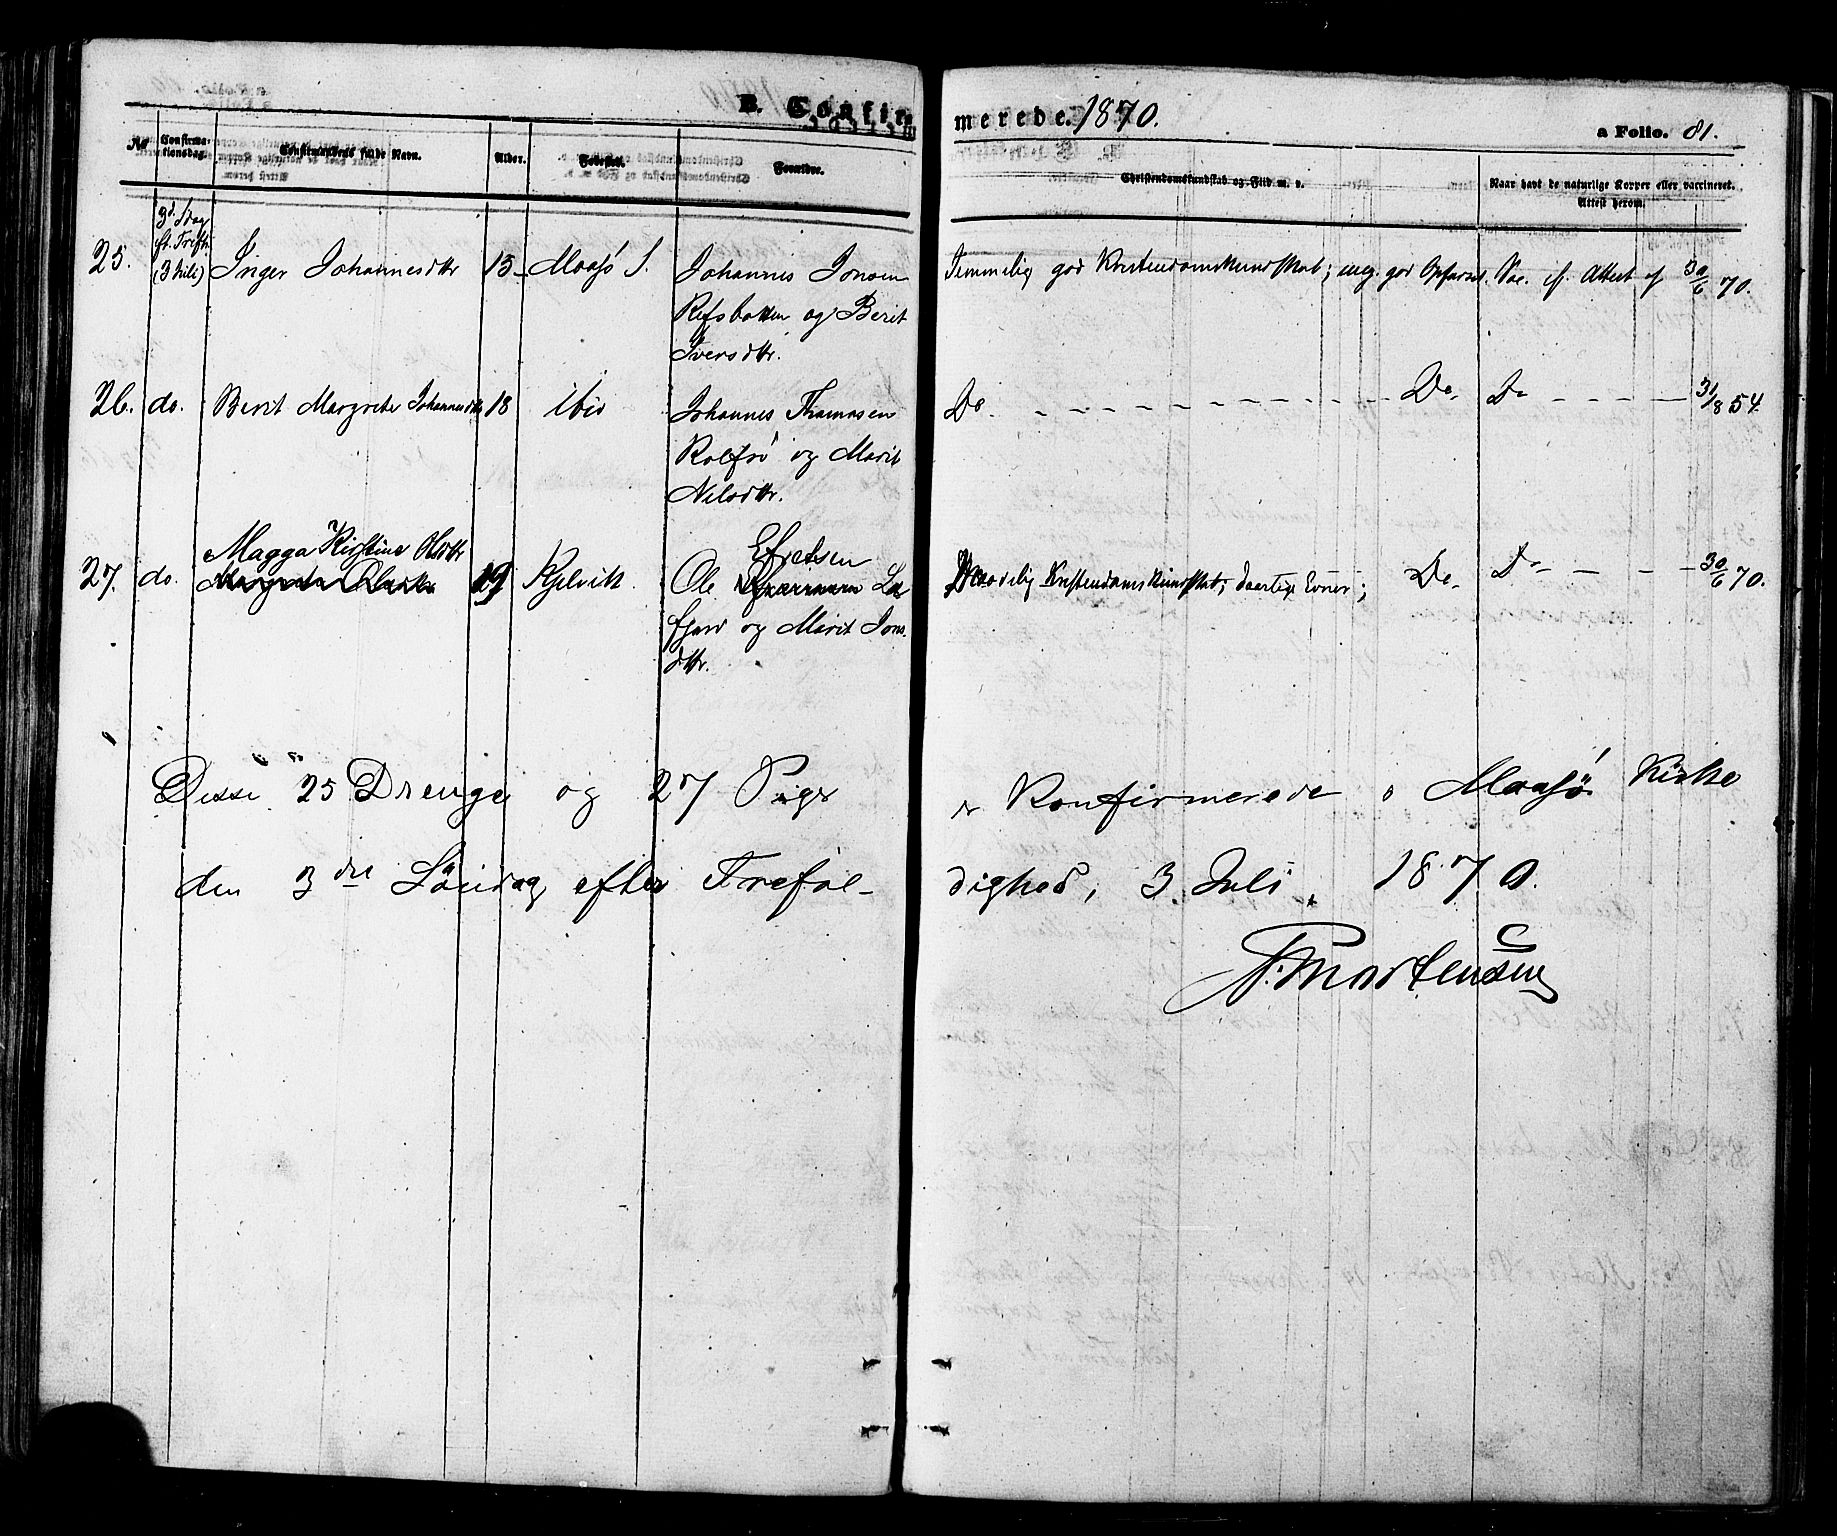 B. Confirmerede. 1870.
a Folio. 81.
No
Confirmationsdag.
Confirmandens fulde Navn.
Alder.
Fødested.
Forældre.
Christendomskundskab og Flid m. v.
Naar havt de naturlige Kopper eller vaccineret. Attest herom.
3d. Sdag
ft. Trefh.
(3 Juli)
25. Inger Johannesdtr 15 Maasø S. Johannes Jonsen
Refsbotten og Berit
Iversdtr.
Temmelig god Kristendomskundskab; meg. god Opførsel. Vac. if. Attest af 30/6 70.
26. do. Berit Margrete Johannesdtr 18 ibid Johannes Thomasen
Rolfsö og Marit
Nilsdtr.
Do. - - - Do. Do - - - 31/8 54.
27. do. Magga Kirstine Olsdtr 19 Kjelvik Ole Efraimsen
fjord og Marit Jons
dtr.
Maadelig Kristendomskundskab; daarlige Evner; Do. Do - - - 30/6 70.
Disse 25 Drenge og 27 Piger er Konfirmerede i Maasø Kirke
den 3die Söndag efter Trefoldighed, 3. Juli, 1870.
P. Mortensen